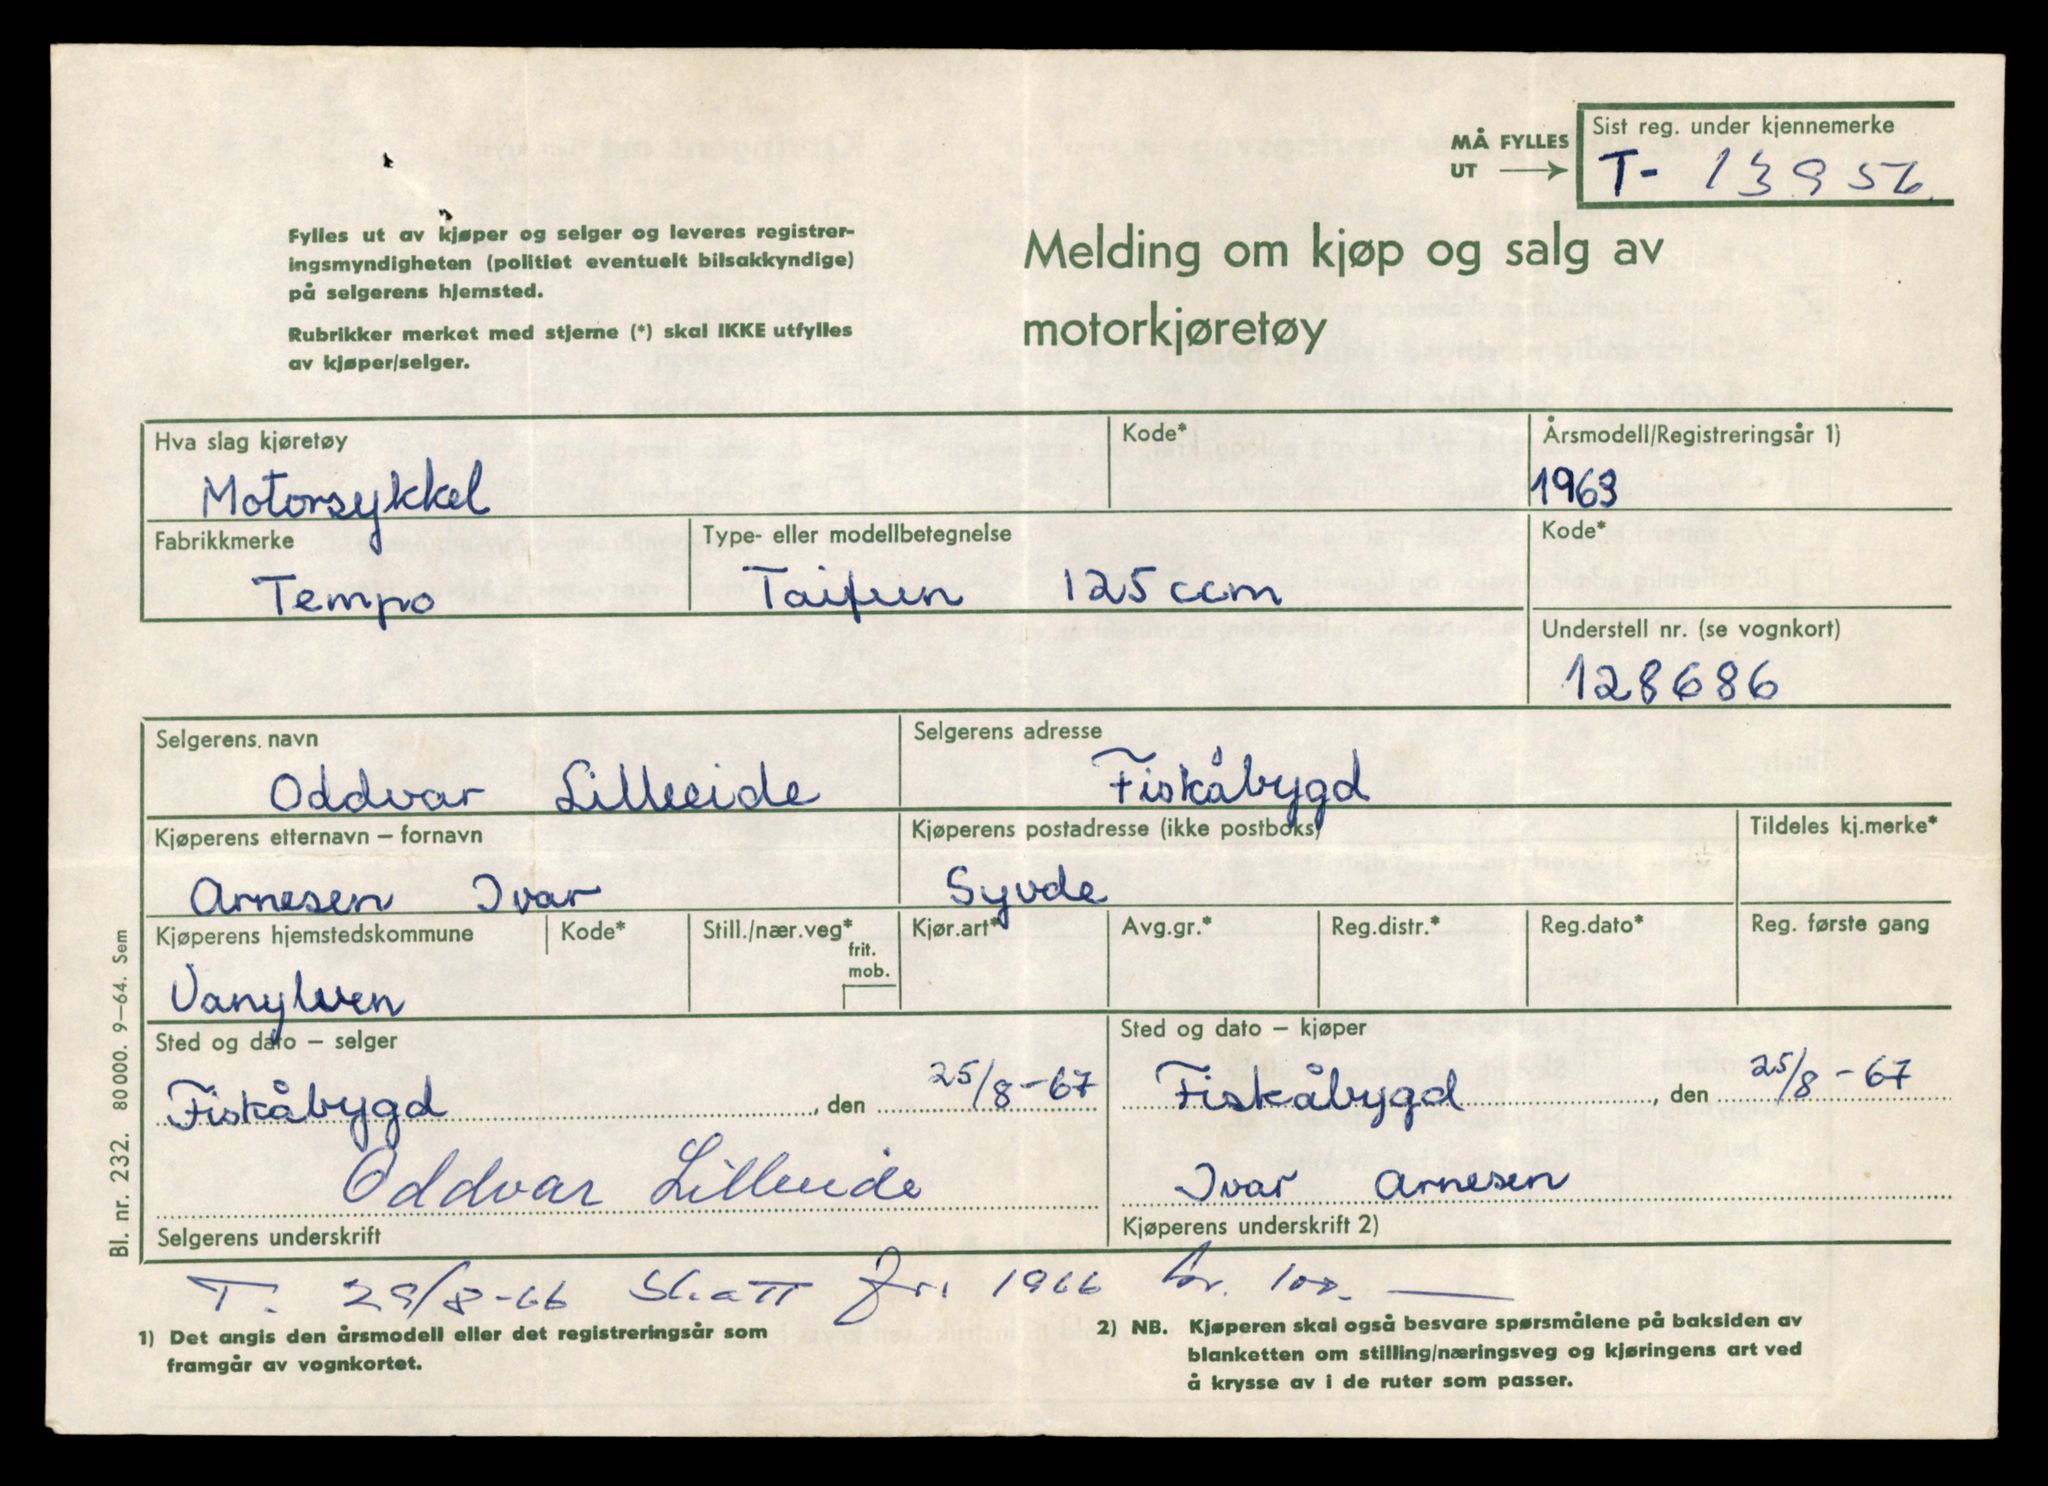 MÅ FYLLES
UT
Sist reg. under kjennemerke
T- 13956
Fylles ut av kjøper og selger og leveres registrer-
ingsmyndigheten (politiet eventuelt bilsakkyndige)
på selgerens hjemsted.
Rubrikker merket med stjerne (*) skal IKKE utfylles
av kjøper/selger.
Melding om kjøp og salg av
motorkjøretøy
Hva slag kjøretøy
Motorsykkel
Kode*
Årsmodell/Registreringsår 1)
1963
Fabrikkmerke
Tempo
Type- eller modellbetegnelse
Taifun 125 ccm
Kode*
Understell nr. (se vognkort)
128686
Selgerens navn
Oddvar Lilleeide
Selgerens adresse
Fiskåbygd
Kjøperens etternavn – fornavn
Arnesen Ivar
Kjøperens postadresse (ikke postboks)
Syvde
Tildeles kj.merke*
Kjøperens hjemstedskommune
Vanylven
Kode*
Still./nær.veg*
frit.
mob.
Kjør.art*
Avg.gr.*
Reg.distr.*
Reg.dato*
Reg. første gang
Sted og dato – selger
Fiskåbygd, den 25/8-67
Oddvar Lilleeide
Selgerens underskrift
Sted og dato – kjøper
Fiskåbygd, den 25/8-67
Ivar Arnesen
Kjøperens underskrift 2)
T. 29/8-66 Skatt for 1966 kr. 100.—
1) Det angis den årsmodell eller det registreringsår som
framgår av vognkortet.
2) NB. Kjøperen skal også besvare spørsmålene på baksiden av
blanketten om stilling/næringsveg og kjøringens art ved
å krysse av i de ruter som passer.
Bl. nr. 232. 80 000. 9–64. Sem